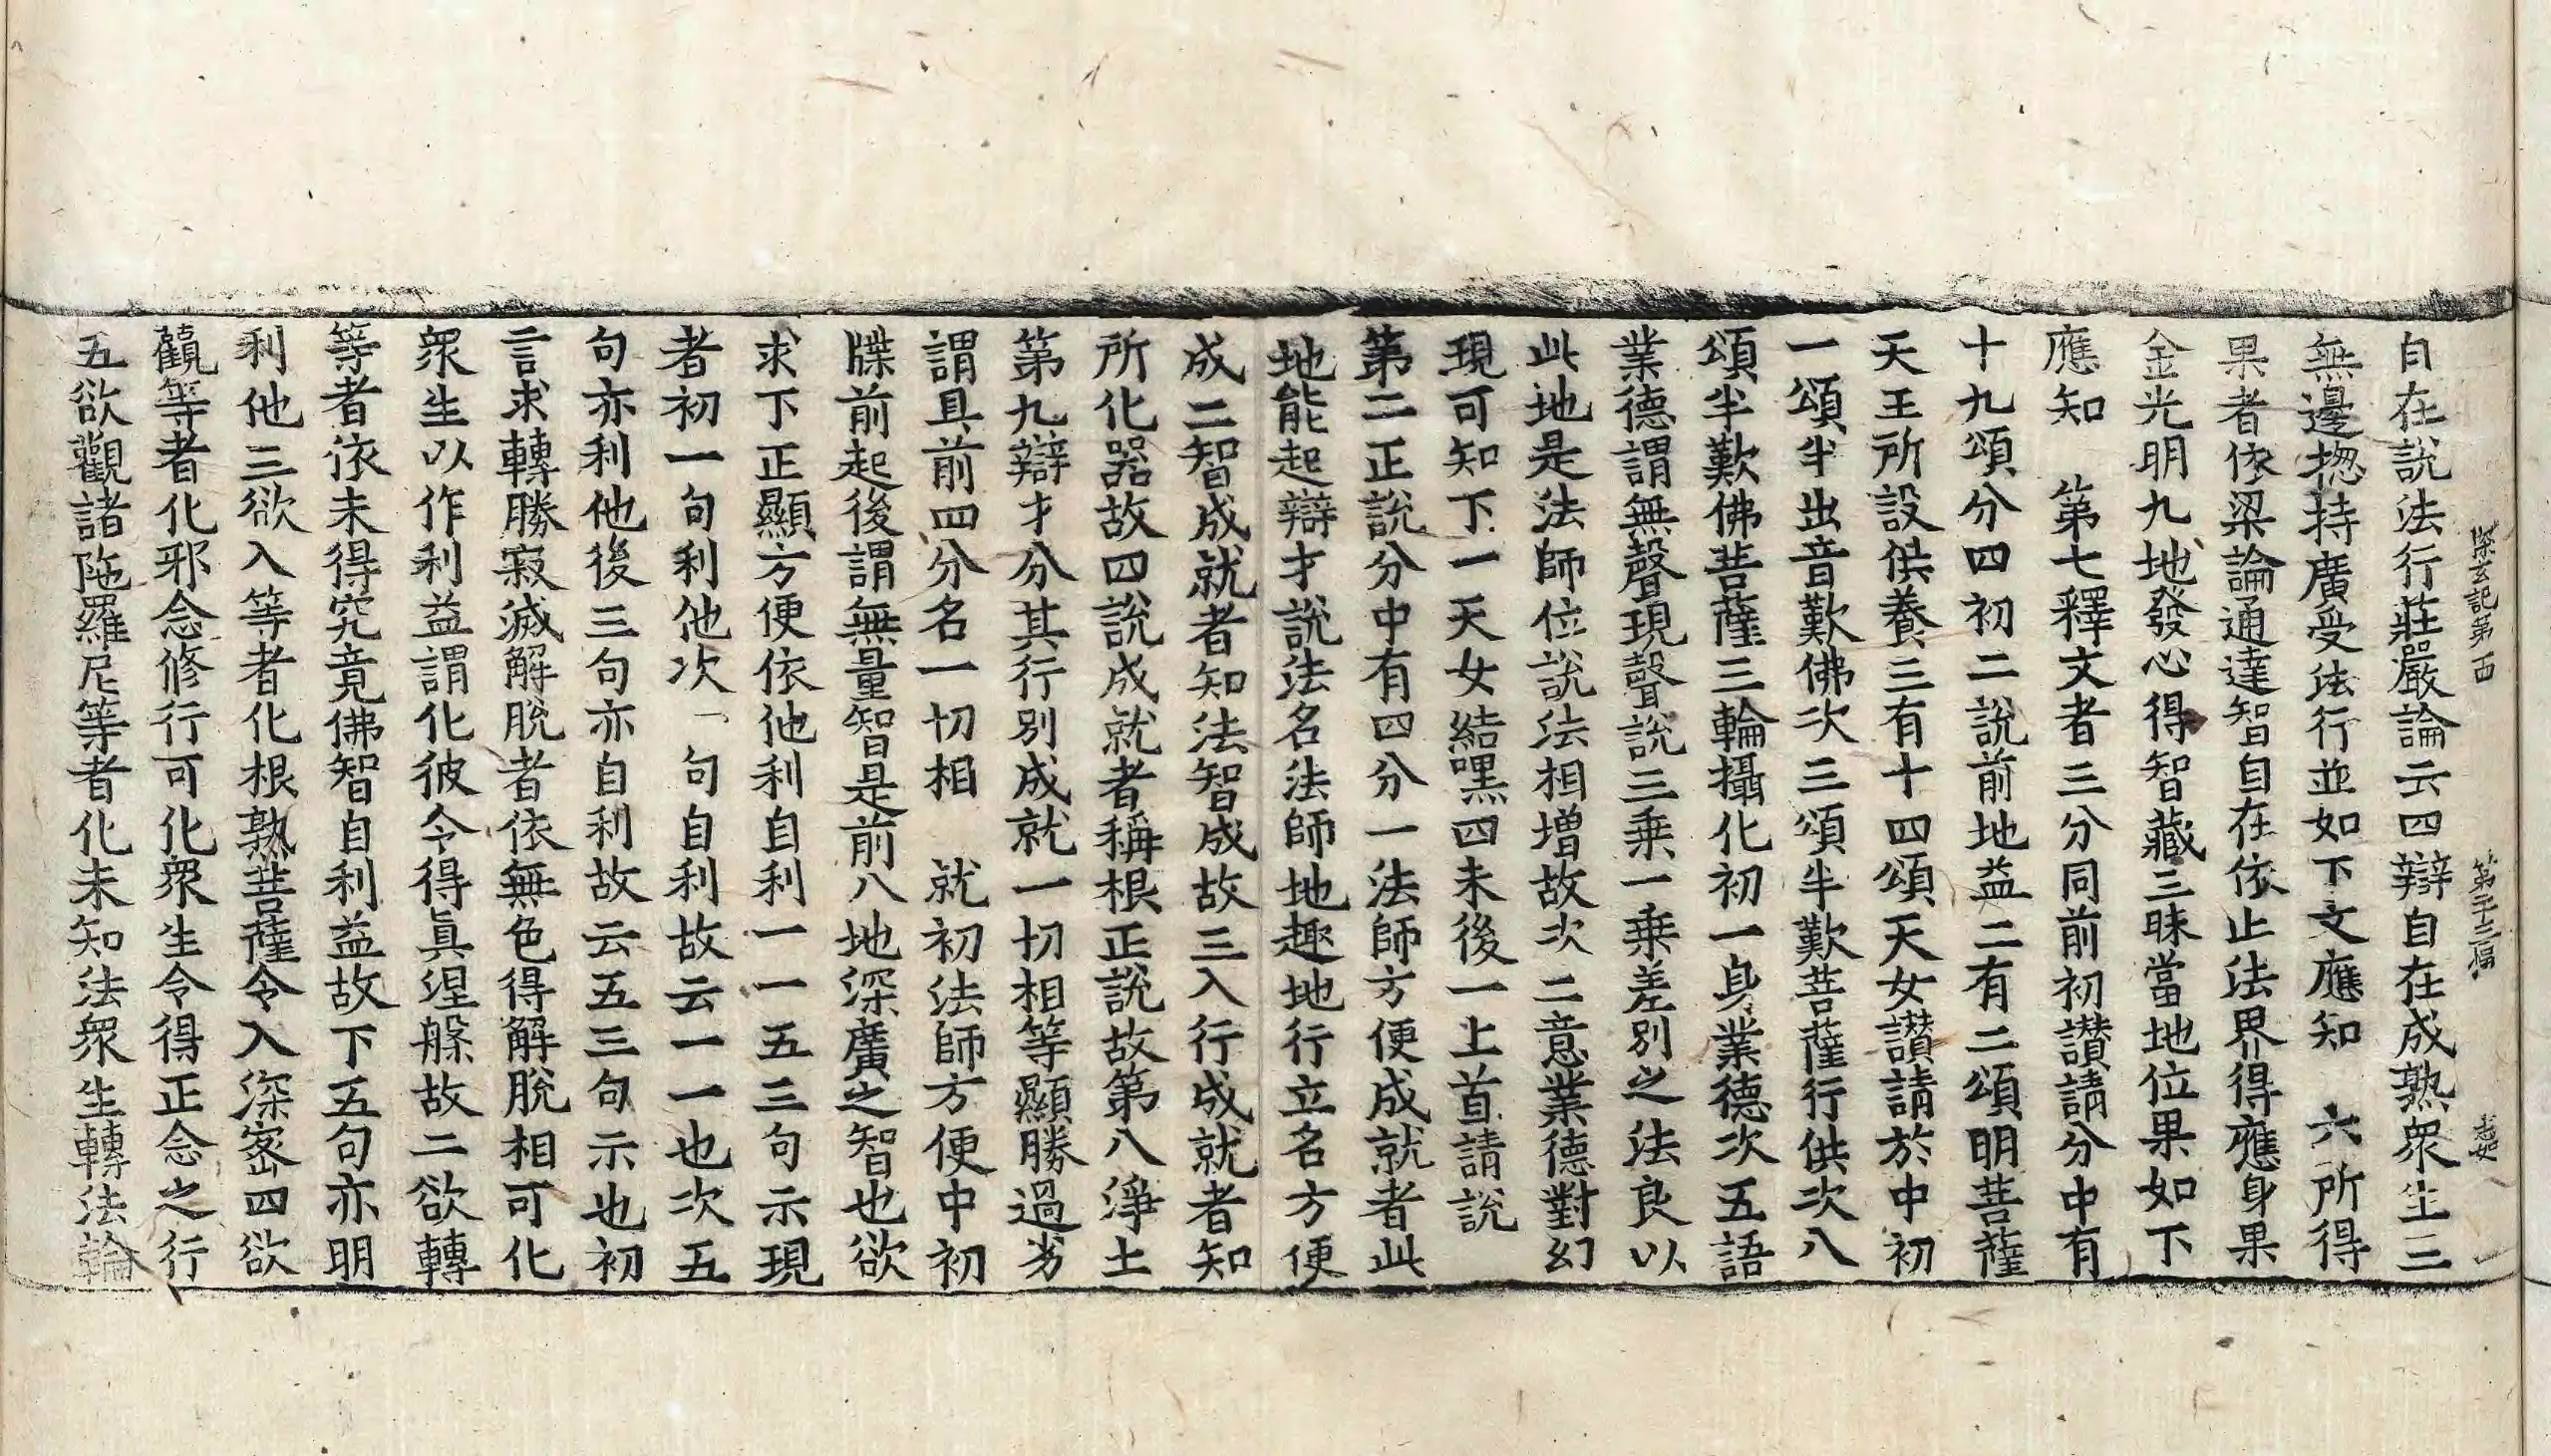 探玄記第十四　第二十三幅　志妃
自在說法行莊嚴論云四辯自在成熟衆生三
無邊揔持廣受法行並如下文應知　六所得
果者依梁論通達智自在依止法界得應身果
金光明九地發心得智藏三昧當地位果如下
應知　第七釋文者三分同前初讚請分中有
十九頌分四初二說前地益二有二頌明菩薩
天王所設供養三有十四頌天女讚請於中初
一頌半出音歎佛次三頌半歎菩薩行供次八
頌半歎佛菩薩三輪攝化初一身業德次五語
業德謂無聲現聲說三乘一乘差別之法良以
此地是法師位說法相增故次二意業德對幻
現可知下一天女結嘿四末後一上首請說
第二正說分中有四分一法師方便成就者此
地能起辯才說法名法師地趣地行立名方便
成二智成就者知法智成故三入行成就者知
所化器故四說成就者稱根正說故第八淨土
第九辯才分其行別成就一切相等顯勝過劣
謂具前四分名一切相　就初法師方便中初
牒前起後謂無量智是前八地深廣之智也欲
求下正顯方便依他利自利一一五三句示現
者初一句利他次一句自利故云一一也次五
句亦利他後三句亦自利故云五三句示也初
言求轉勝寂滅解脫者依無色得解脫相可化
衆生以作利益謂化彼令得眞涅槃故二欲轉
等者依未得究竟佛智自利益故下五句亦明
利他三欲入等者化根熟菩薩令入深密四欲
觀等者化邪念修行可化衆生令得正念之行
五欲觀諸陁羅尼等者化未知法衆生轉法輪